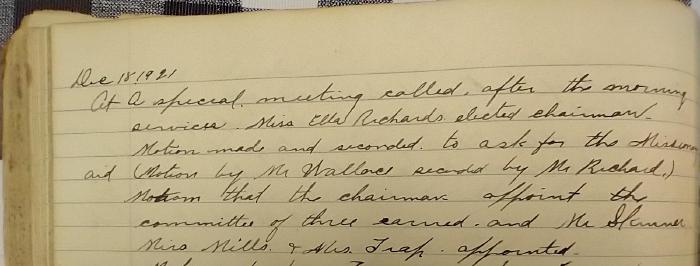 Dec 18 1921
At a special meeting called. after the morning
services. Miss Ella Richards elected chairman.
Motion made and seconded. to ask for the Mission
aid (Motion by Mr Wallace seconded by Mr Richard.)
Motion that the chairman appoint the
committee of three carried. and Mr Skinner
Miss Mills. & Mrs. Trap. appointed.